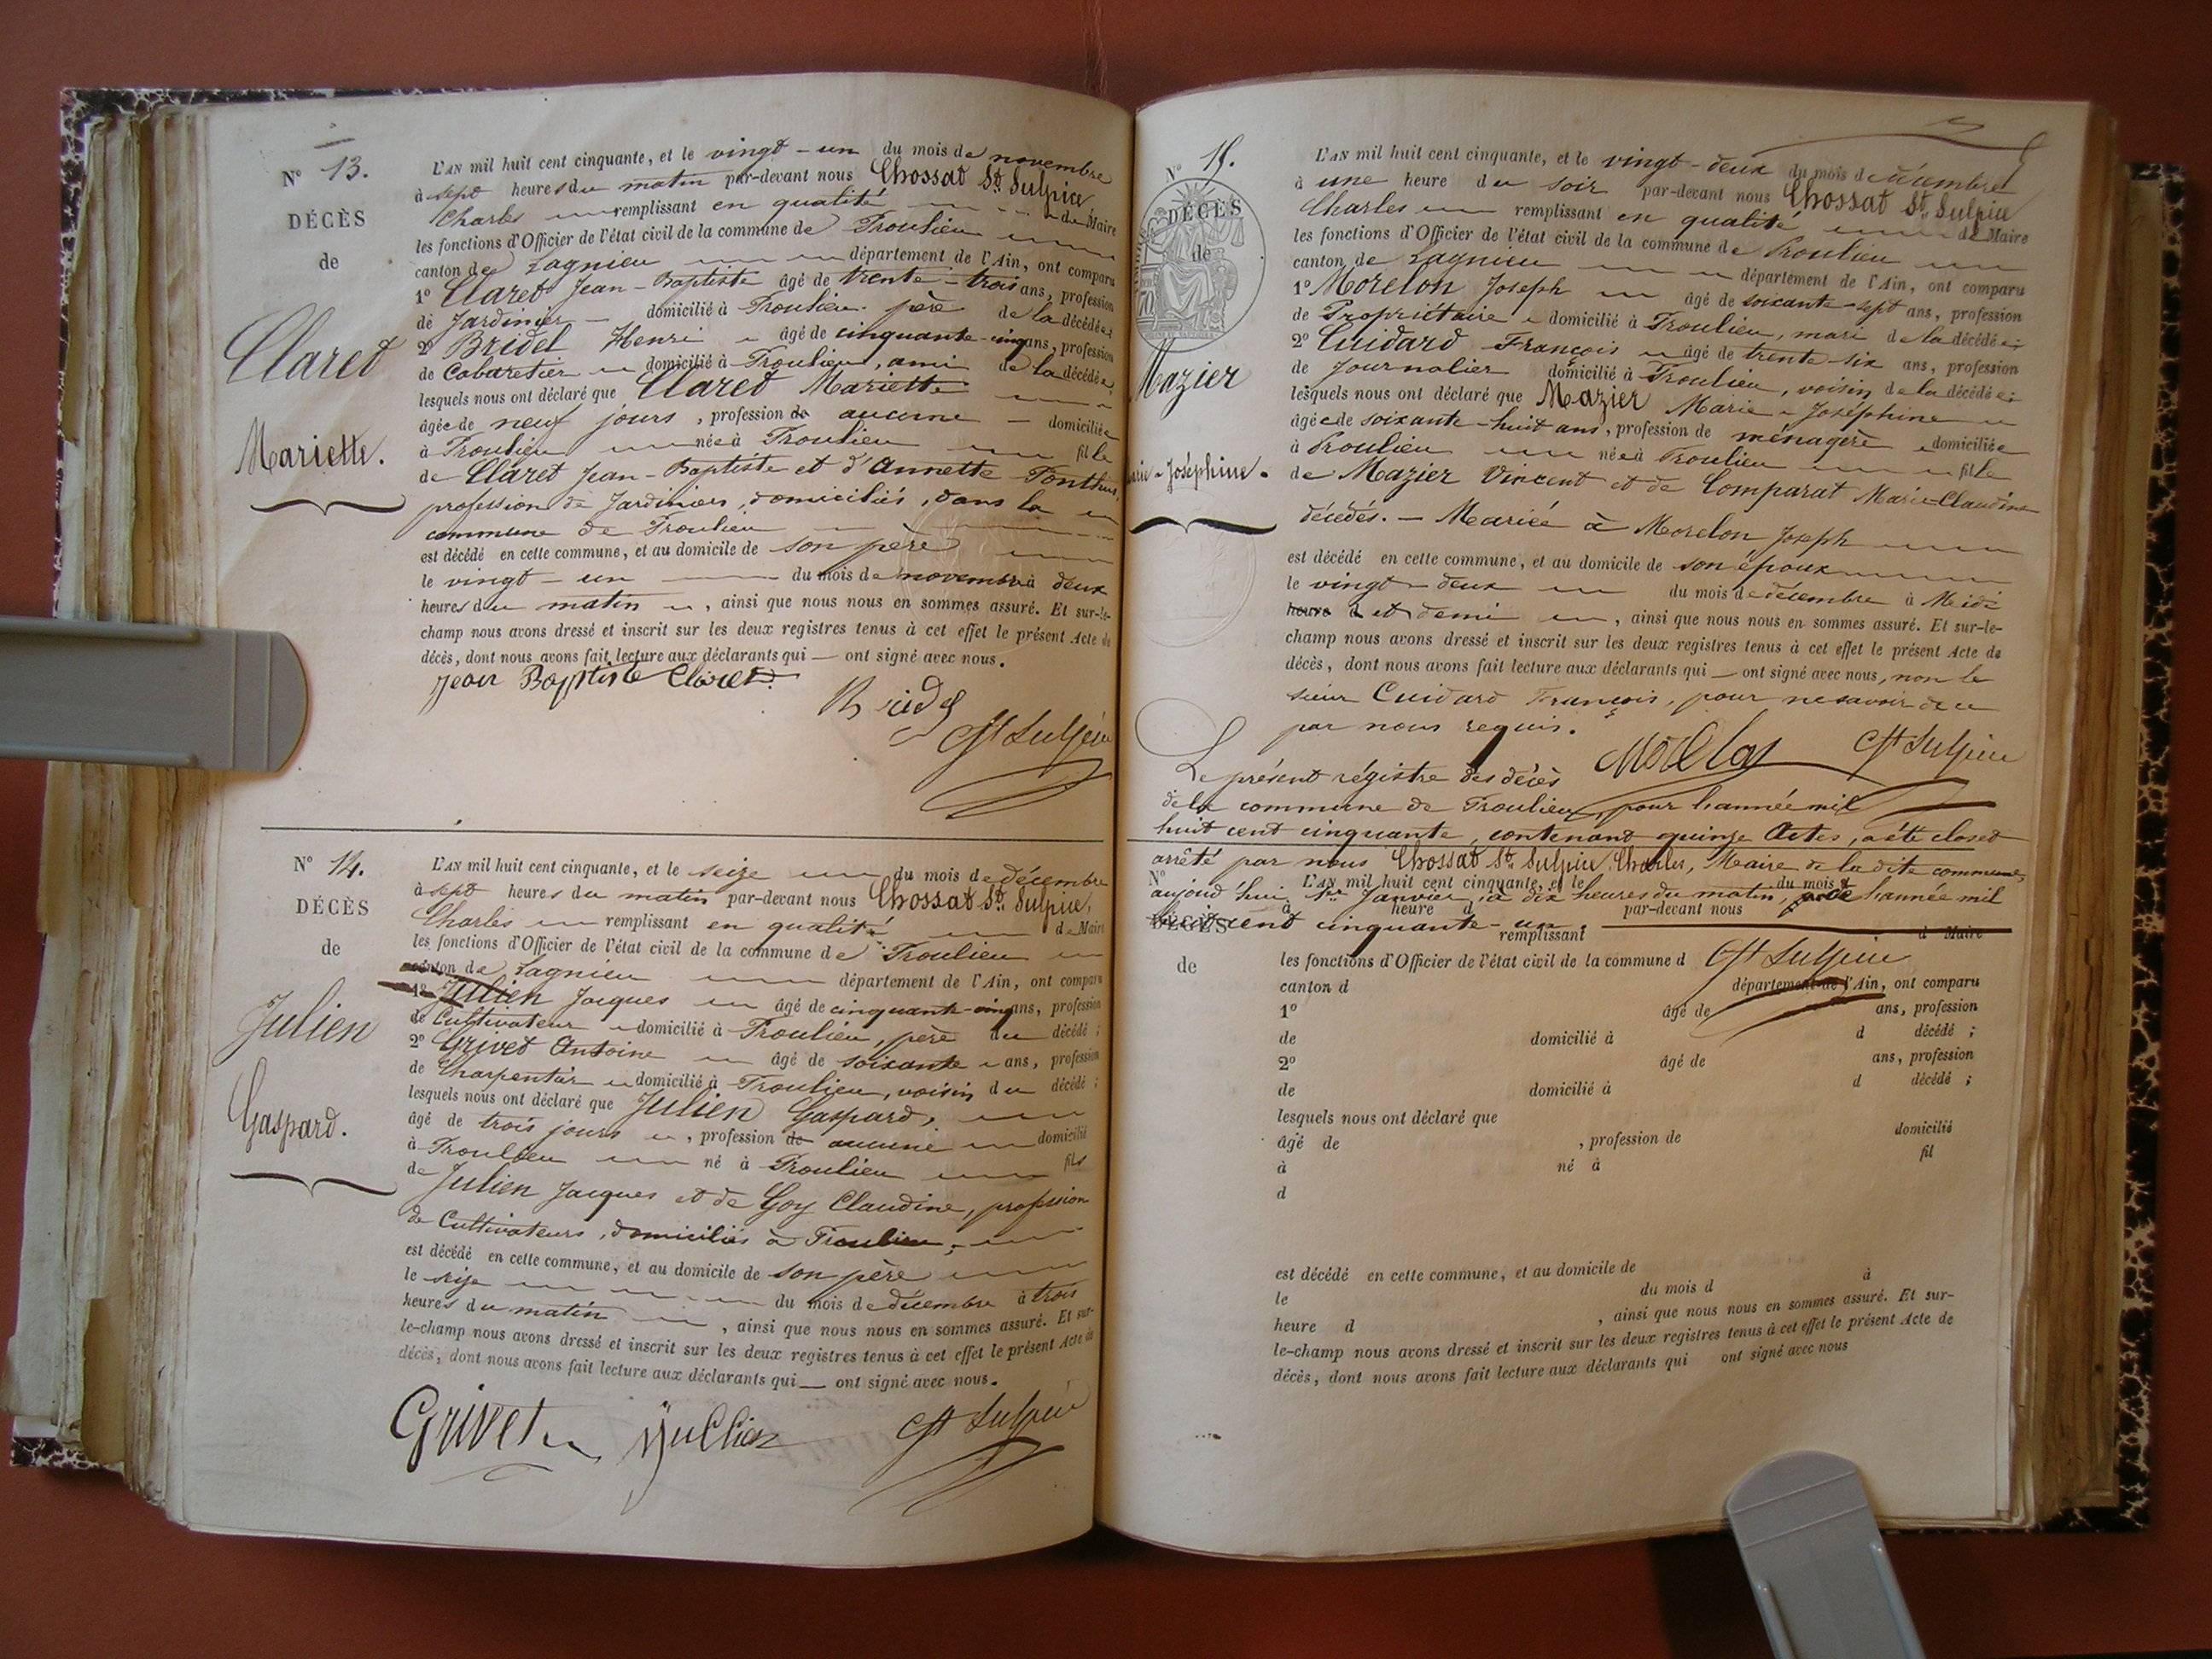 N° 13.
DÉCÈS
de
Claret
Mariette.
L'AN mil huit cent cinquante, et le vingt-un du mois de novembre
à sept heures du matin par-devant nous Chossat St. Sulpice
Charles remplissant en qualité de Maire
les fonctions d'Officier de l'état civil de la commune de Proulieu
canton de Lagnieu département de l'Ain, ont comparu
1° Claret Jean-Baptiste âgé de trente-trois ans, profession
de Jardinier domicilié à Proulieu père de la décédée;
2° Bridel Henri âgé de cinquante-cinq ans, profession
de Cabaretier domicilié à Proulieu, ami de la décédée,
lesquels nous ont déclaré que Claret Mariette
âgée de neuf jours, profession de aucune domiciliée
à Proulieu née à Proulieu fille
de Claret Jean-Baptiste et d'Annette Ponthus
profession de Jardiniers, domiciliés, dans la
commune de Proulieu
est décédé en cette commune, et au domicile de son père
le vingt-un du mois de novembre à deux
heures du matin, ainsi que nous nous en sommes assuré. Et sur-le-
champ nous avons dressé et inscrit sur les deux registres tenus à cet effet le présent Acte de
décès, dont nous avons fait lecture aux déclarants qui ont signé avec nous.
Jean Baptiste Claret
Bridel
Ct St Sulpice
N° 14.
DÉCÈS
de
Julien
Gaspard.
L'AN mil huit cent cinquante, et le seize du mois de décembre
à sept heures du matin par-devant nous Chossat St. Sulpice,
Charles remplissant en qualité de Maire
les fonctions d'Officier de l'état civil de la commune de Proulieu
canton de Lagnieu département de l'Ain, ont comparu
1° Julien Jacques âgé de cinquante-cinq ans, profession
de Cultivateur domicilié à Proulieu, père du décédé;
2° Grivet Antoine âgé de soixante ans, profession
de Charpentier domicilié à Proulieu, voisin du décédé;
lesquels nous ont déclaré que Julien Gaspard,
âgé de trois jours, profession de aucune domicilié
à Proulieu né à Proulieu fils
de Julien Jacques et de Goy Claudine, profession
de Cultivateurs, domiciliés à Proulieu,
est décédé en cette commune, et au domicile de son père
le seize du mois de décembre à trois
heures du matin, ainsi que nous nous en sommes assuré. Et sur-
le-champ nous avons dressé et inscrit sur les deux registres tenus à cet effet le présent Acte de
décès, dont nous avons fait lecture aux déclarants qui ont signé avec nous.
Grivet Jullien Ct St Sulpice
N° 15.
DÉCÈS
de
Mazier
Marie-Joséphine.
L'AN mil huit cent cinquante, et le vingt-deux du mois de décembre
à une heure du soir par-devant nous Chossat St. Sulpice
Charles remplissant en qualité de Maire
les fonctions d'Officier de l'état civil de la commune de Proulieu
canton de Lagnieu département de l'Ain, ont comparu
1° Morelon Joseph âgé de soixante-sept ans, profession
de Propriétaire domicilié à Proulieu, mari de la décédée;
2° Cuidard François âgé de trente-six ans, profession
de Journalier domicilié à Proulieu, voisin de la décédée;
lesquels nous ont déclaré que Mazier Marie-Joséphine
âgée de soixante-huit ans, profession de ménagère domiciliée
à Proulieu née à Proulieu fille
de Mazier Vincent et de Comparat Marie-Claudine
décédés. - Mariée à Morelon Joseph
est décédé en cette commune, et au domicile de son époux
le vingt-deux du mois de décembre à Midi
heure d et demi, ainsi que nous nous en sommes assuré. Et sur-le-
champ nous avons dressé et inscrit sur les deux registres tenus à cet effet le présent Acte de
décès, dont nous avons fait lecture aux déclarants qui ont signé avec nous, non le
sieur Cuidard François, pour ne savoir de ce
par nous requis.
Ct St Sulpice
Le présent régistre des décès
de la commune de Proulieu, pour l'année mil
huit cent cinquante, contenant quinze Actes, a été clos et
arrêté par nous Chossat St. Sulpice, Charles, Maire de la dite commune,
aujourd'hui 1er Janvier, à dix heures du matin, de l'année mil
huit cent cinquante-un.
Ct St Sulpice
N°
DÉCÈS
de
L'AN mil huit cent cinquante, et le du mois d
à heure d par-devant nous
remplissant d Maire
les fonctions d'Officier de l'état civil de la commune d
canton d département de l'Ain, ont comparu
1° âgé de ans, profession
de domicilié à d décédé;
2° âgé de ans, profession
de domicilié à d décédé;
lesquels nous ont déclaré que
âgé de , profession de domicilié
à né à fil
d
est décédé en cette commune, et au domicile de
le du mois d à
heure d , ainsi que nous nous en sommes assuré. Et sur-
le-champ nous avons dressé et inscrit sur les deux registres tenus à cet effet le présent Acte de
décès, dont nous avons fait lecture aux déclarants qui ont signé avec nous